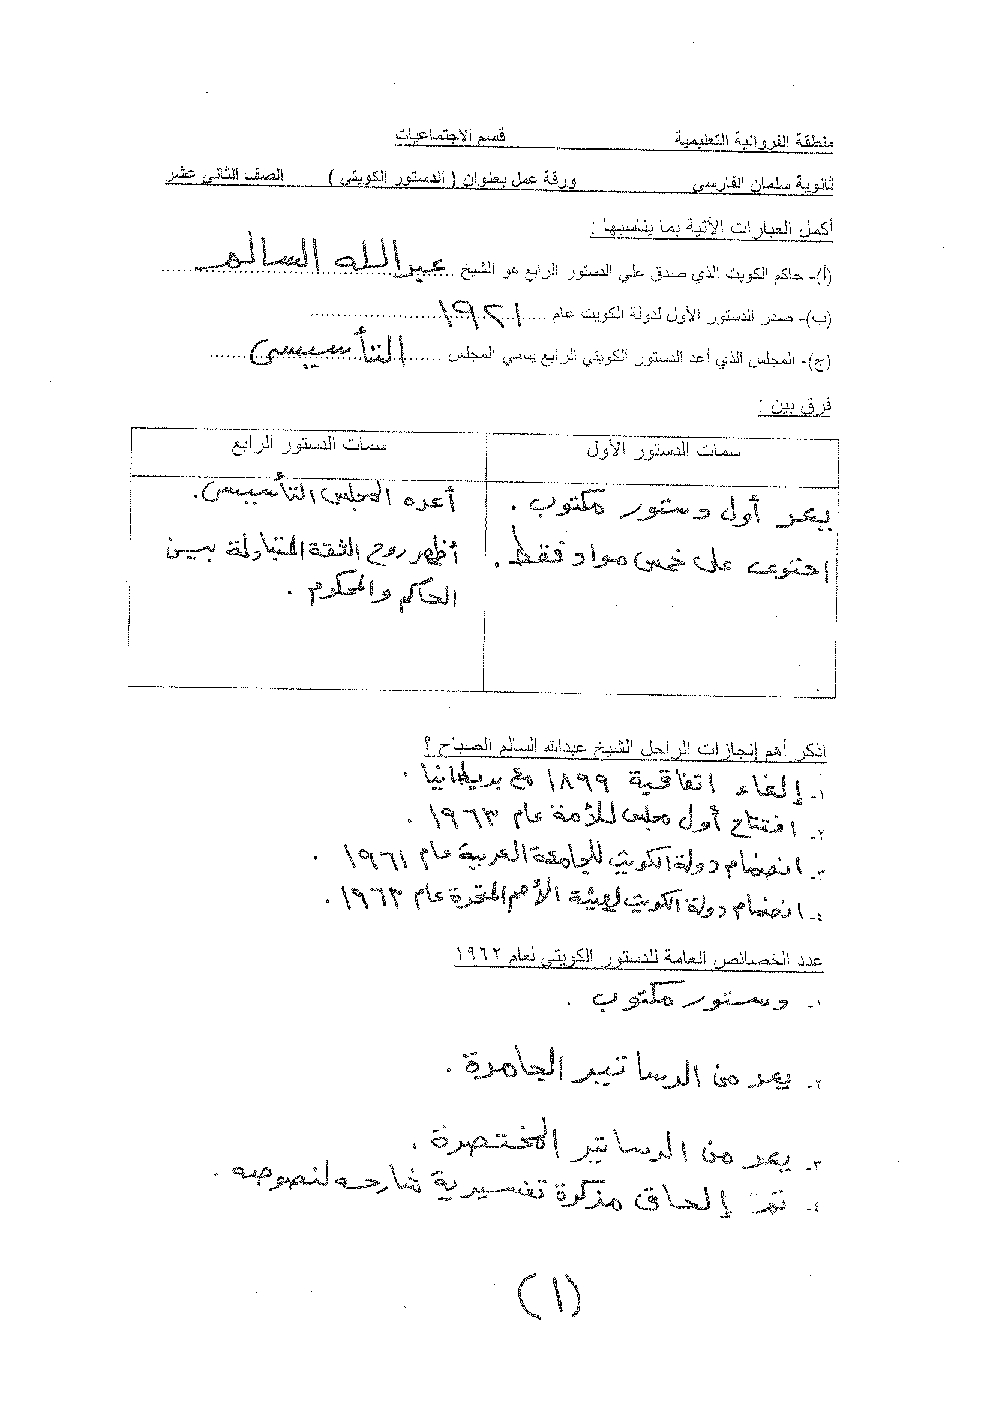 منطقة الفروانية التعليمية قسم الاجتماعيات
ثانوية سلمان الفارسي ورقة عمل بعنوان ( الدستور الكويتي ) الصف الثاني عشر
أكمل العبارات الآتية بما يناسبها :
(أ)- حاكم الكويت الذي صدق علي الدستور الرابع هو الشيخ عبدالله السالم
(ب)- صدر الدستور الأول لدولة الكويت عام ١٩٢١
(ج)- المجلس الذي أعد الدستور الكويتي الرابع يسمي المجلس التأسيسي
فرق بين :
سمات الدستور الأول سمات الدستور الرابع
يعد أول دستور مكتوب . أعده المجلس التأسيسي .
احتوى على خمس مواد فقط . أظهر روح الثقة المتبادلة بين
الحاكم والمحكوم .
اذكر أهم إنجازات الراحل الشيخ عبدالله السالم الصباح ؟
١- إلغاء اتفاقية ١٨٩٩ مع بريطانيا .
٢- افتتاح أول مجلس للأمة عام ١٩٦٣ .
٣- انضمام دولة الكويت للجامعة العربية عام ١٩٦١ .
٤- انضمام دولة الكويت لهيئة الأمم المتحدة عام ١٩٦٣ .
عدد الخصائص العامة للدستور الكويتي لعام ١٩٦٢
١- دستور مكتوب .
٢- يعد من الدساتير الجامدة .
٣- يعد من الدساتير المختصرة .
٤- تم إلحاق مذكرة تفسيرية شارحه لنصوصه .
(١)